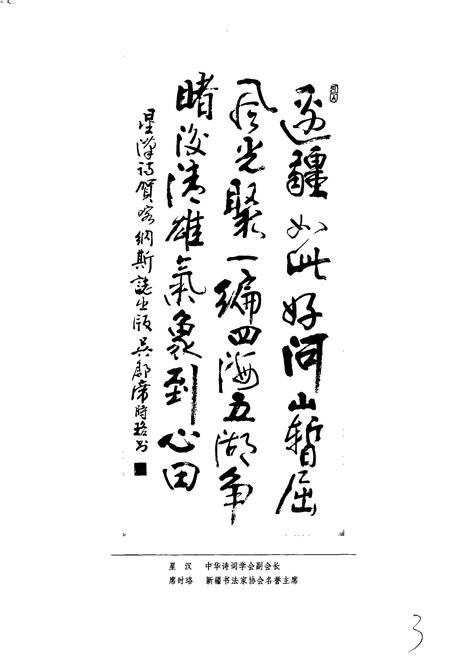 邊疆如此好河山暫屈
风光聚一编四海五湖争
睹後清雄氣象到心田
星漢詩賀喀納斯誌出版吴郡席時珞书
星　汉　中华诗词学会副会长
席时珞　新疆书法家协会名誉主席
3